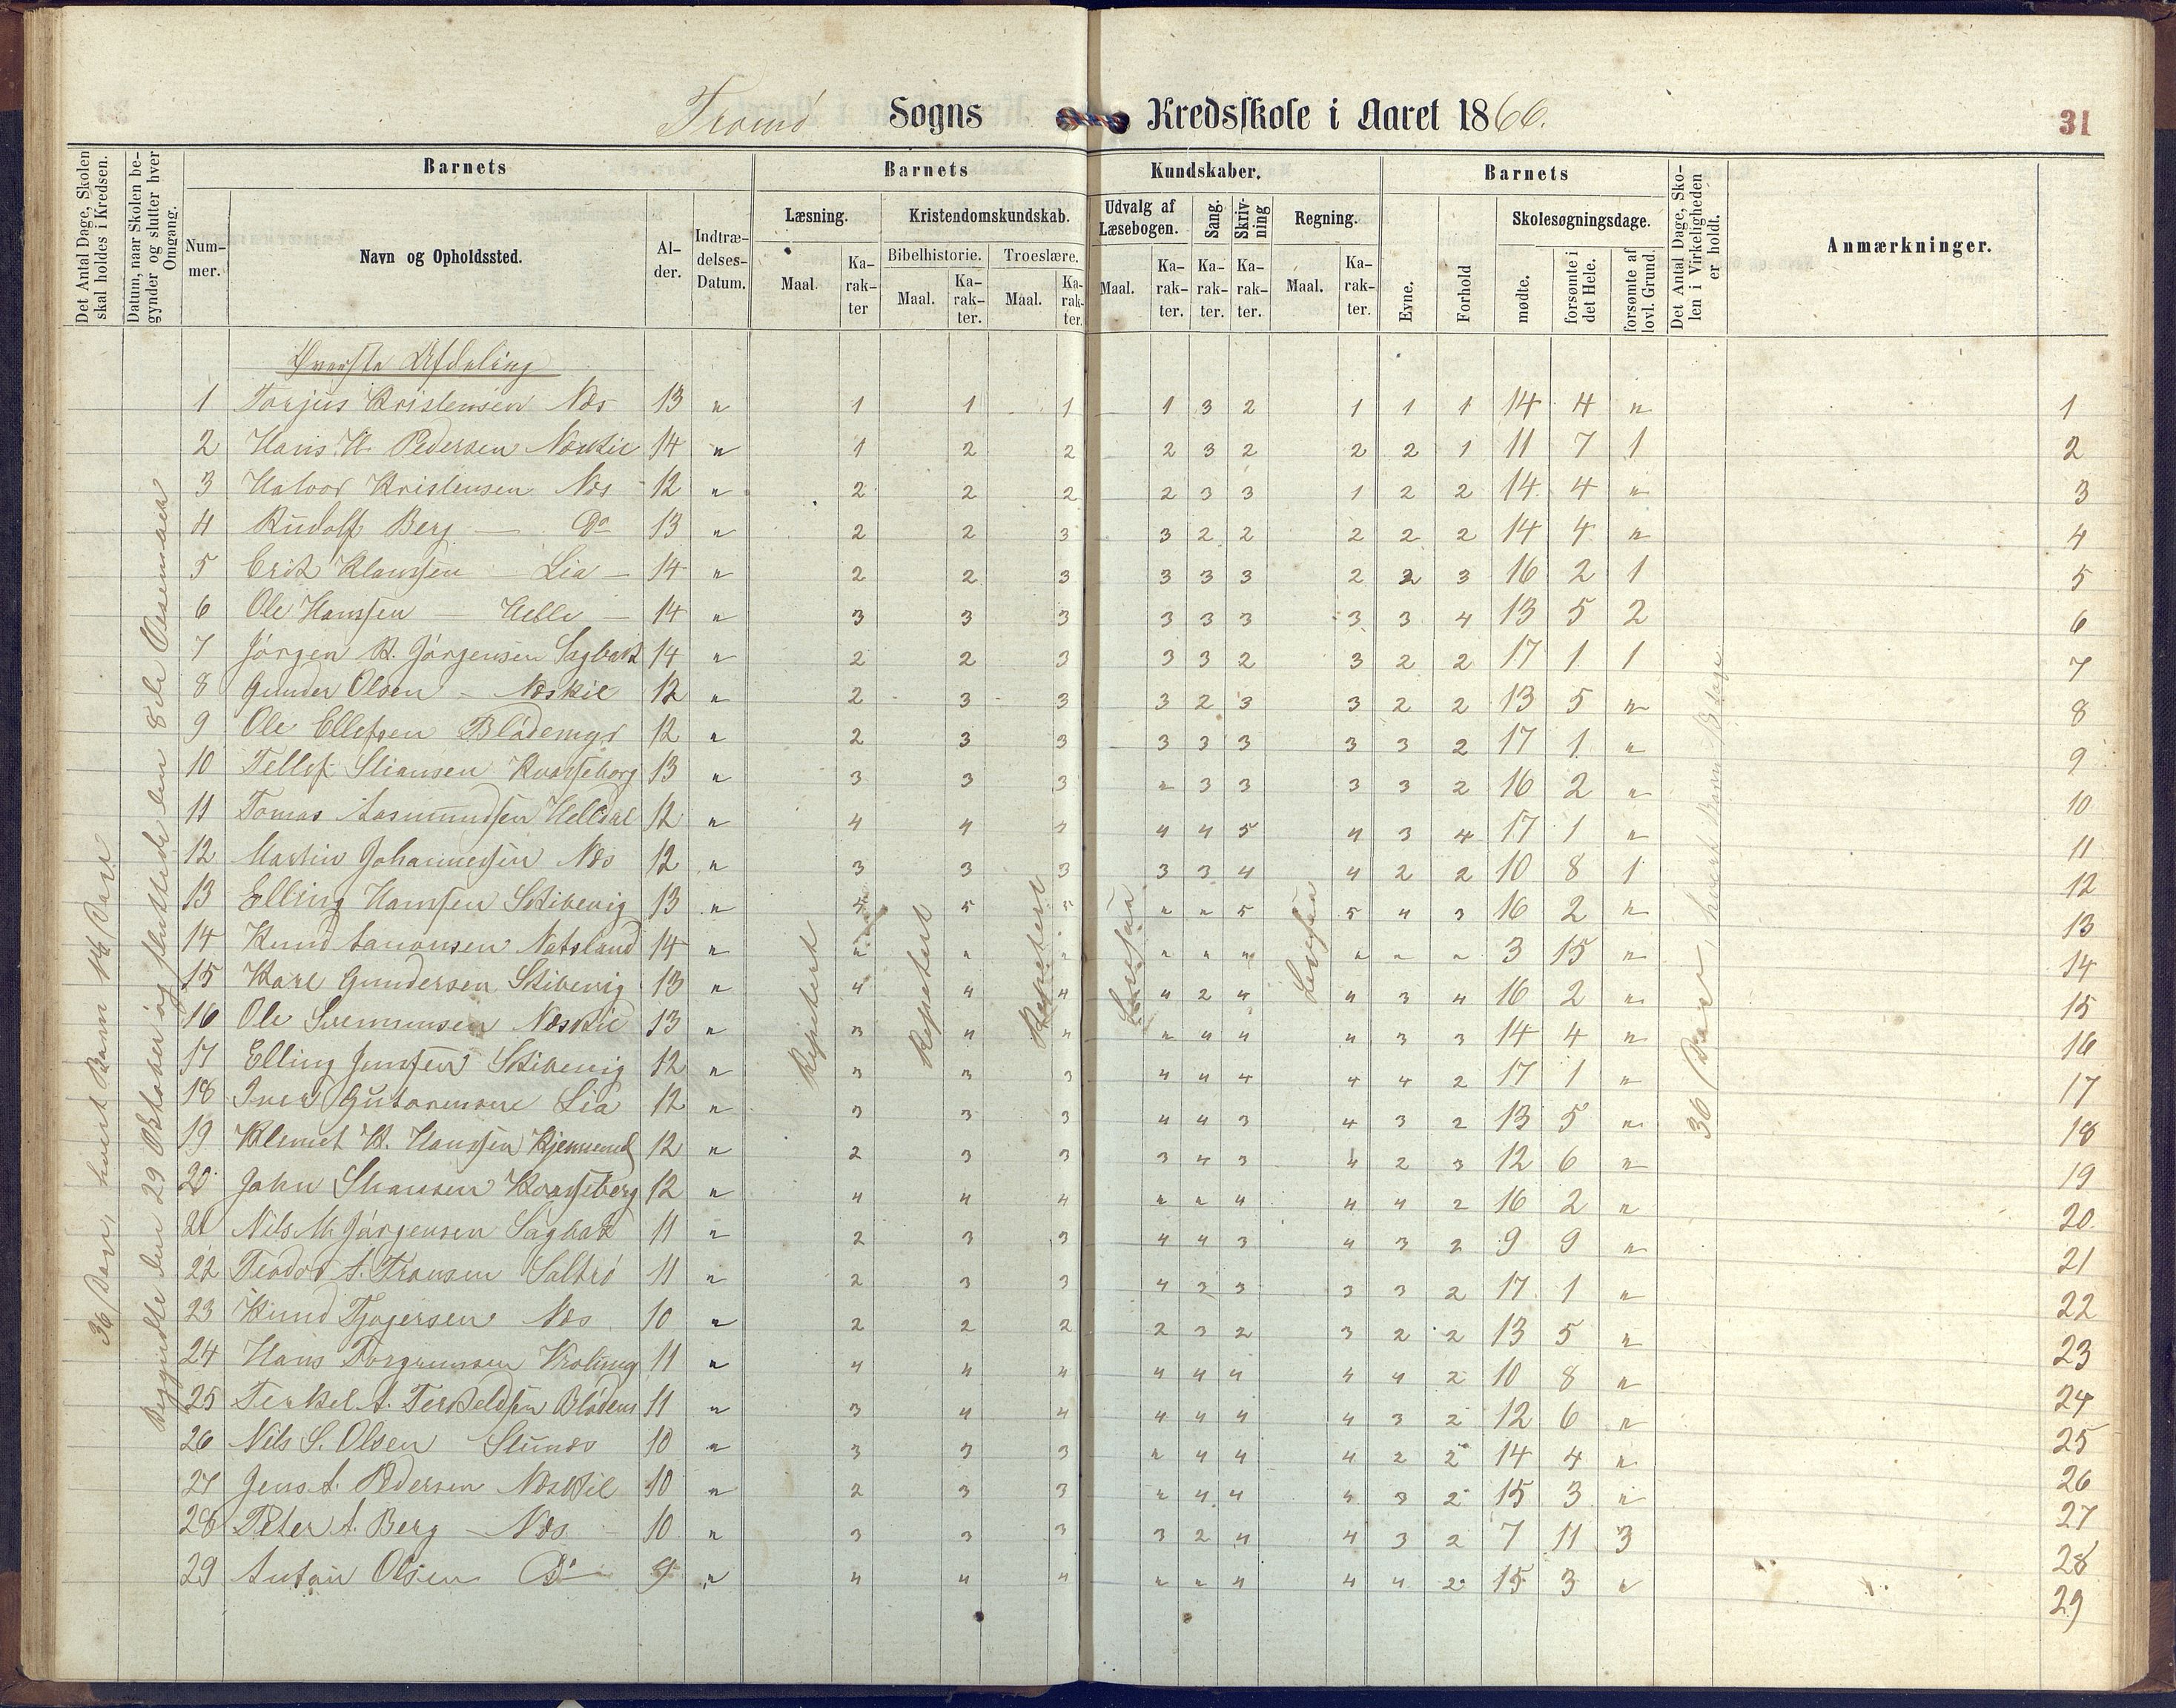 Tromö Sogns Kredsskole i Aaret 1866.
31
Det Antal Dage, Skolen skal holdes i Kredsen.
Datum, naar Skolen begynder og slutter hver Omgang.
Barnets
Barnets
Kundskaber.
Barnets
Det Antal Dage, Skolen i Virkeligheden er holdt.
Anmærkninger.
Nummer.
Navn og Opholdssted.
Alder.
Indtrædelses-Datum.
Læsning.
Kristendomskundskab.
Udvalg af Læsebogen.
Sang.
Skrivning
Regning.
Evne.
Forhold
Skolesøgningsdage.
Bibelhistorie.
Troeslære.
Maal.
Karakter
Maal.
Karakter.
Maal.
Karakter.
Maal.
Karakter.
Karakter.
Karakter.
Maal.
Karakter.
mødte.
forsømte i det Hele.
forsømte af lovl. Grund.
Øverste Afdeling
1 Torjus Kristensen Næs 13 " 1 1 1 1 3 2 1 1 1 14 4 " 1
2 Hans H. Pedersen Næskil 14 " 1 2 2 2 3 2 2 2 1 11 7 1 2
3 Halvor Kristensen Næs 12 " 2 2 2 2 3 3 1 2 2 14 4 " 3
4 Rudolf Berg — Do 13 " 2 2 3 3 2 2 2 2 2 14 4 " 4
5 Erik Klausen — Lia — 14 " 2 2 3 3 3 3 2 2 3 16 2 1 5
6 Ole Hanssen — Helle — 14 " 3 3 3 3 3 3 3 3 4 13 5 2 6
7 Jörgen K. Jörgensen Sagbak 14 " 2 2 3 3 3 2 3 2 2 17 1 1 7
8 Gunder Olsen — Næskil 12 " 2 3 3 3 2 3 3 2 2 13 5 " 8
9 Ole Ellefsen Blödemyr 12 " 2 3 3 3 3 3 3 3 2 17 1 " 9
10 Tellef Stiansen Kvasseborg 13 " 3 3 3 " 3 3 3 3 2 16 2 " 10
11 Tomas Aasmundsen Helldal 12 " 4 4 4 4 4 5 4 3 4 17 1 " 11
12 Martin Johannessen Næs 12 " 3 3 3 3 3 4 4 2 2 10 8 1 12
13 Elling Hanssen Skibevig 13 " 4 5 5 " " 5 5 4 3 16 2 " 13
14 Knud Aanonsen Natsland 14 " " " " " " " " " " 3 15 " 14
15 Karl Gundersen Skibevig 13 " 4 4 4 4 2 4 4 3 4 16 2 " 15
16 Ole Svennunsen Næskil 13 " 3 4 " " 4 4 4 3 3 14 4 " 16
17 Elling Jenssen Skibevig 12 " 3 3 3 4 4 4 4 4 2 17 1 " 17
18 Iver Gutormsen Lia 12 " 3 3 3 4 4 3 4 3 2 13 5 " 18
19 Klemet K. Hanssen 12 " 2 3 3 3 4 3 4 2 3 12 6 " 19
20 John Stiansen Kvasseborg 12 " 4 4 4 " " 4 4 4 2 16 2 " 20
21 Nils M. Jörgensen Sagbak 11 " 2 3 3 4 4 3 4 3 2 9 9 " 21
22 Teodor A. Fransen Saltrö 11 " 2 3 3 4 3 3 3 3 2 17 1 " 22
23 Knud Næs 10 " 2 2 2 2 3 2 3 2 2 13 5 " 23
24 Hans Torgrimsen 11 " 4 4 4 4 4 4 4 4 2 10 8 " 24
25 Terkel A. Terkeldsen Blödem 11 " 3 4 4 4 4 4 4 3 2 12 6 " 25
26 Nils S. Olsen 10 " 3 3 3 " 4 4 4 2 2 14 4 " 26
27 Jens A. Pedersen Næskil 10 " 2 3 3 " 4 4 4 3 2 15 3 " 27
28 Peter A. Berg — Næs 10 " 3 3 3 3 2 4 4 3 2 7 11 3 28
29 Anton Olsen Do 9 " 4 4 4 " " 4 4 4 2 15 3 " 29
36 Dage, hvert Barn 18 Dage
Begyndte den 29 Oktober og sluttede den 8de Desember
Repetert
Repetert
Repetert
36 Dage, hvert Barn 18 Dage.